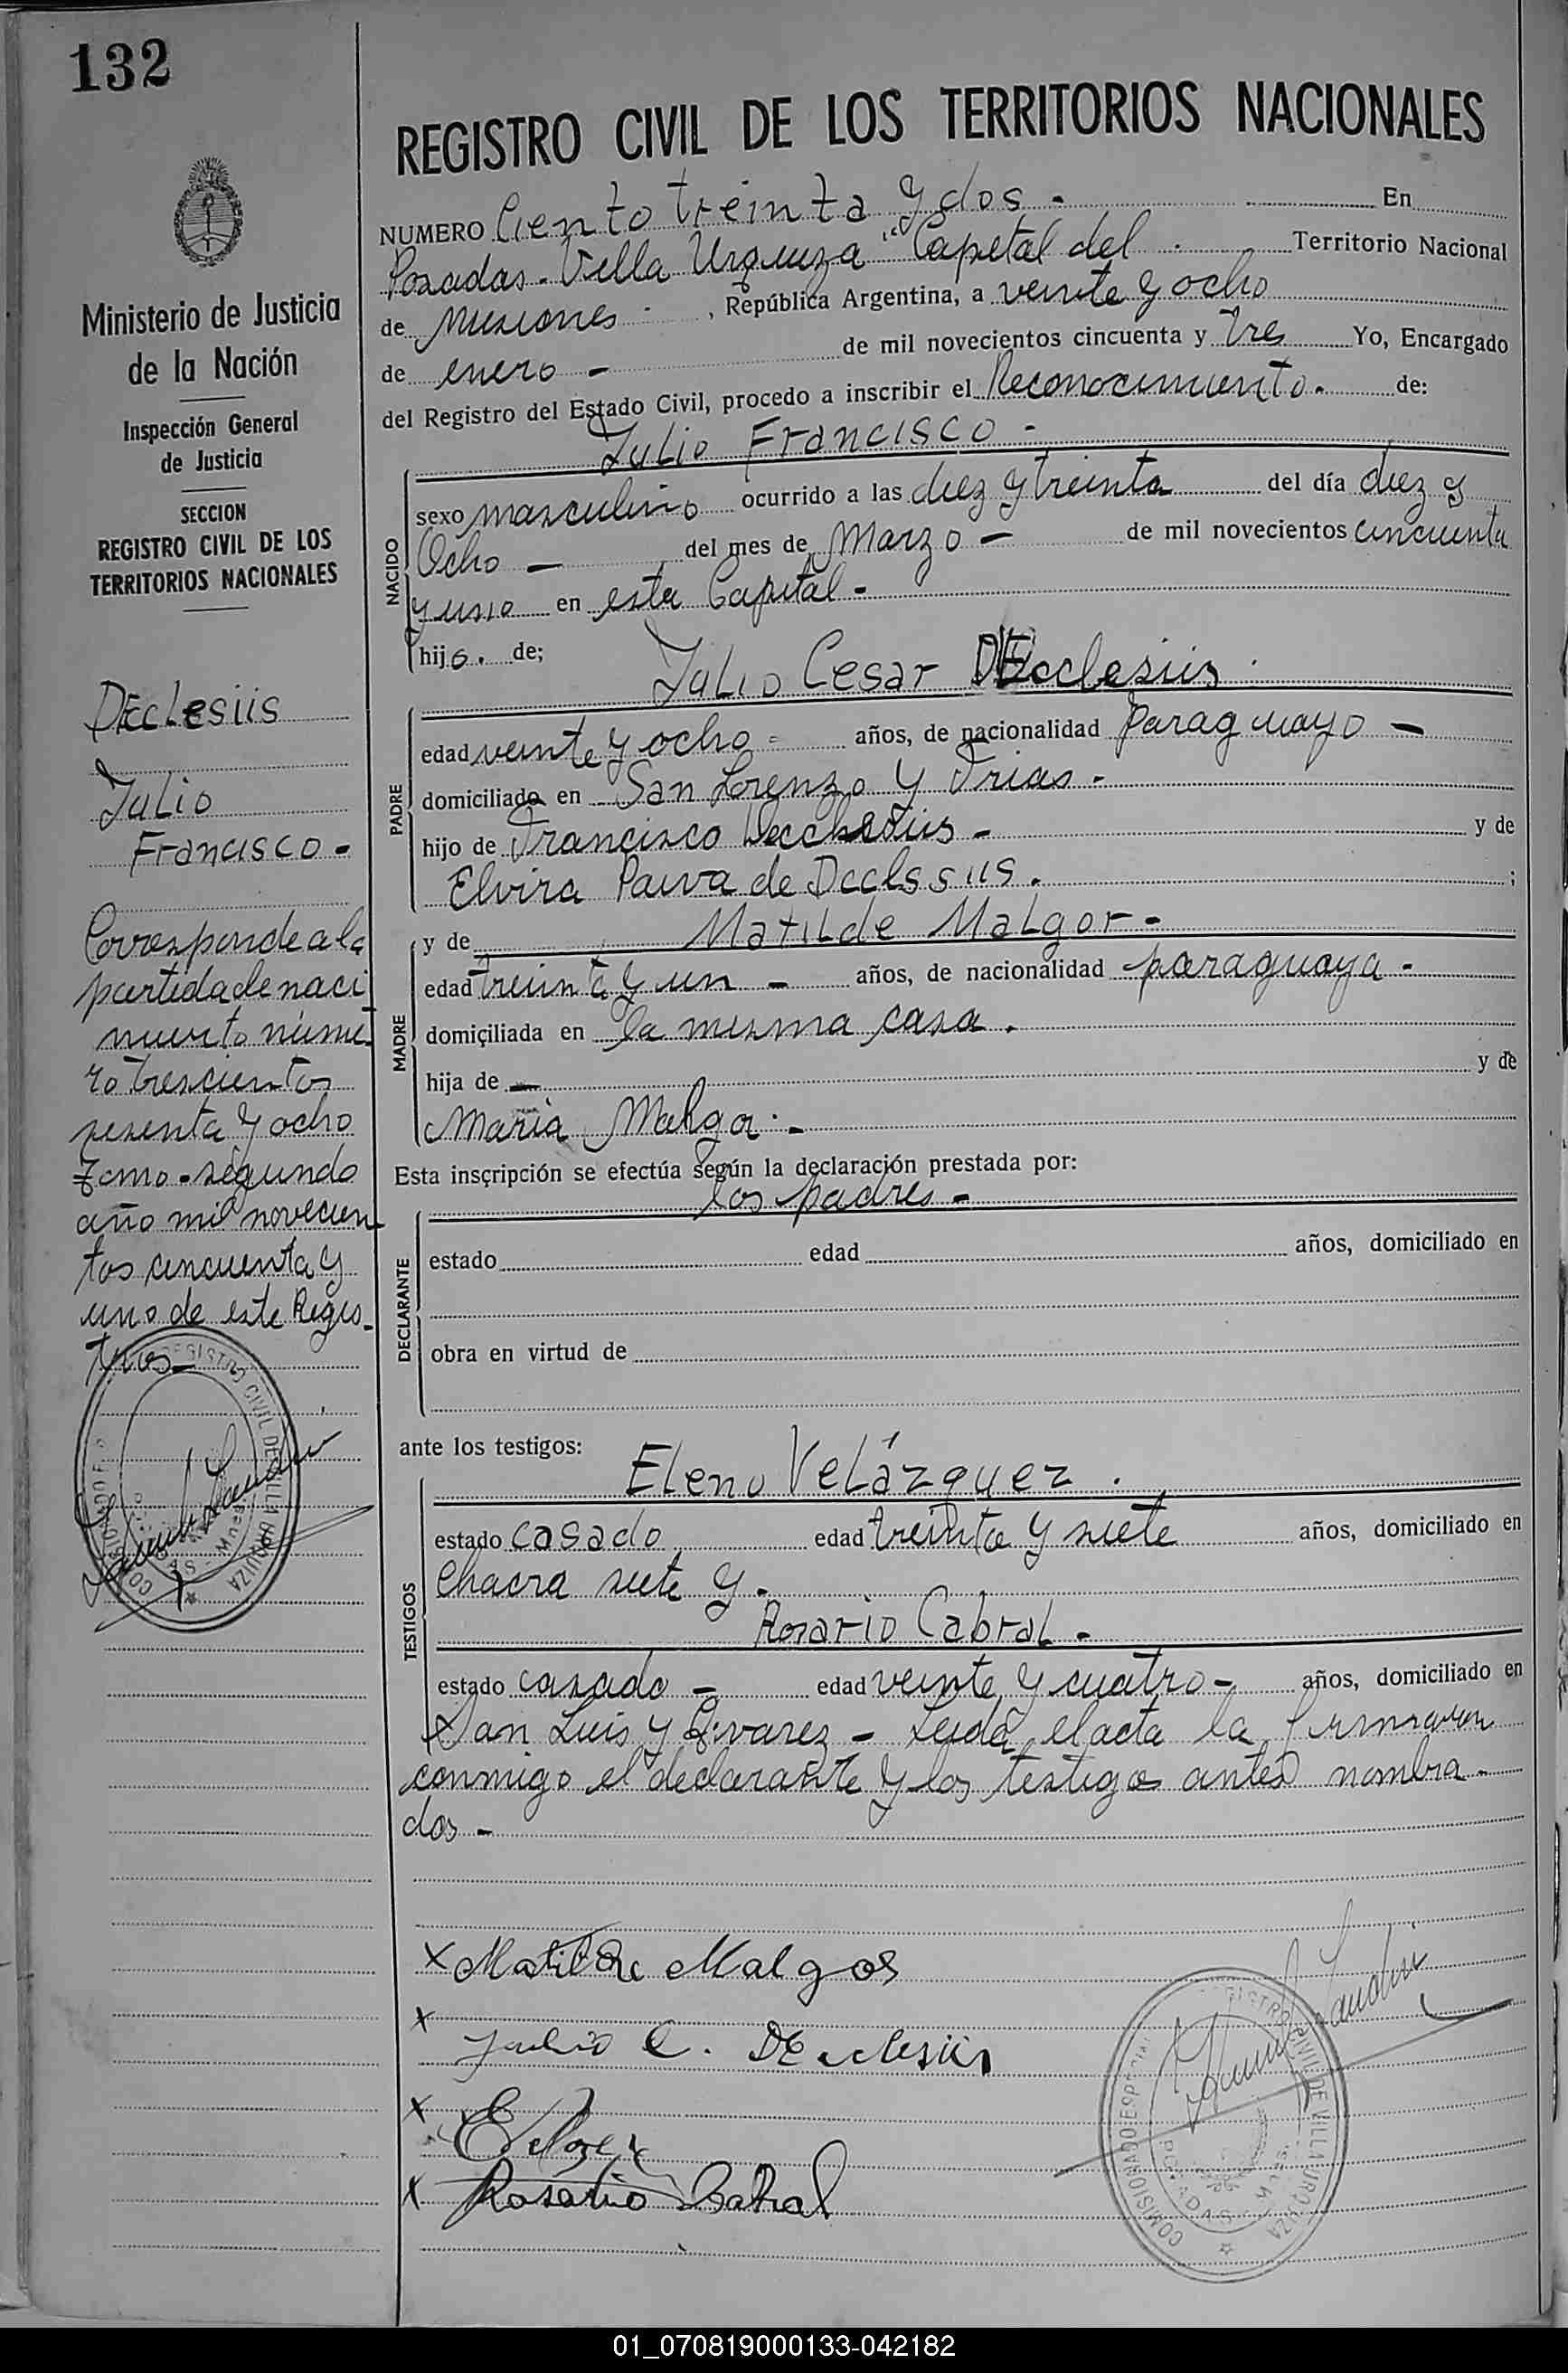 132
Ministerio de Justicia
de la Nación
Inspección General
de Justicia
SECCION
REGISTRO CIVIL DE LOS
TERRITORIOS NACIONALES
DEclesiis
Julio
Francisco -
Corresponde a la
partida de naci
miento núme-
ro trescientos
sesenta y ocho
tomo - segundo
año mil novecien
tos cincuenta y
uno de este Regis-
tros -
REGISTRO CIVIL DE LOS TERRITORIOS NACIONALES
NUMERO Ciento treinta y dos - En
Posadas - Villa Urquiza "Capital del Territorio Nacional
de Misiones - , República Argentina, a veinte y ocho
de enero - de mil novecientos cincuenta y tres Yo, Encargado
del Registro del Estado Civil, procedo a inscribir el Reconocimiento - de:
Julio Francisco -
NACIDO
sexo masculino ocurrido a las diez y treinta del día diez y
Ocho - del mes de Marzo - de mil novecientos cincuenta
y uno en esta Capital -
hijo. de;
Julio Cesar DEcclesiis
PADRE
edad veinte y ocho = años, de nacionalidad Paraguayo -
domiciliado en San Lorenzo y Frias -
hijo de Francisco - y de
Elvira Paiva de Dcclssiis. ;
MADRE
y de Matilde Malgor -
edad treinta y un - años, de nacionalidad paraguaya -
domiciliada en la misma casa.
hija de - y de
Maria Malgor. -
Esta inscripción se efectúa según la declaración prestada por:
los padres -
DECLARANTE
estado edad años, domiciliado en
obra en virtud de
ante los testigos:
Eleno Velázquez.
TESTIGOS
estado casado edad treinta y siete años, domiciliado en
Chacra siete y -
Rosario Cabral -
estado casado - edad veinte y cuatro - años, domiciliado en
San Luis y - Leida el acta la firmaron
conmigo el declarante y los testigos antes nombra-
dos -
x Matilde Malgor
x Julio C. DEcclesiis
x
x Rosario Cabral
COMISIONADO ESPECIAL REGISTRO CIVIL DE VILLA URQUIZA
POSADAS
01_070819000133-042182